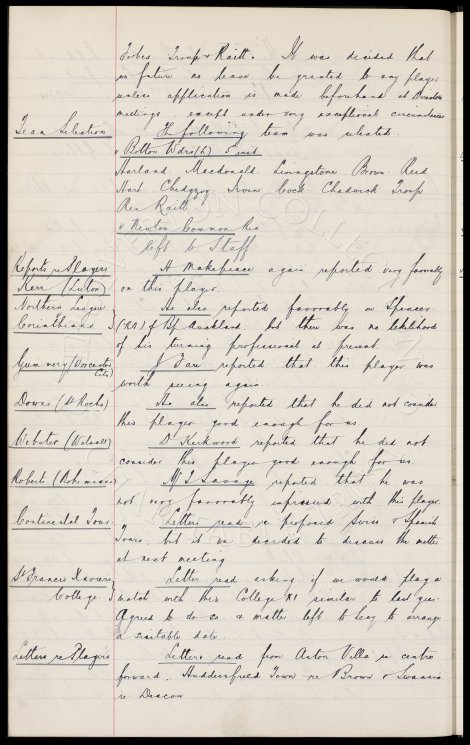 Forbes Troup & Raitt. It was decided that
in future no leave be granted to any player
unless application is made beforehand at Directors
meetings except under very exceptional circumstances
Team Selection The following team was selected.
v Bolton Wdrs (h) 5 inst
Hartland Macdonald Livingstone Brown Reid
Hart. Chedgzoy Irvine Cock Chadwick Troup
Res Raitt
v Newton Common Res
left to Staff.
Reports re Players H Makepeace again reported very favorably
Kerr (Luton) on this player.
Northern League He also reported favourably on Spencer
Corinthians (RA) of Bp Auckland, but there was no likelihood
of his turning professional at present.
Gummery (Worcester City) J Fare reported that this player was
worth seeing again.
Downs (St Rochs) He also reported that he did not consider
this player good enough for us
Webster (Walsall) D Kirkwood reported that he did not
consider this player good enough for us.
Roberts (Bohemians) M T Savage reported that he was
not very favorably impressed with this player.
Continental Tour Letters read re proposed Swiss & Spanish
Tours, but it was decided to discuss the matter
at next meeting.
St Francis Xaviers Letter read asking if we would play a
College match with this College XI similar to last year.
Agreed to do so & matter left to Secy to arrange
a suitable date.
Letters re Players Letters read from Aston Villa re centre
forward. Huddersfield Town re Brown & Swansea
re Deacon